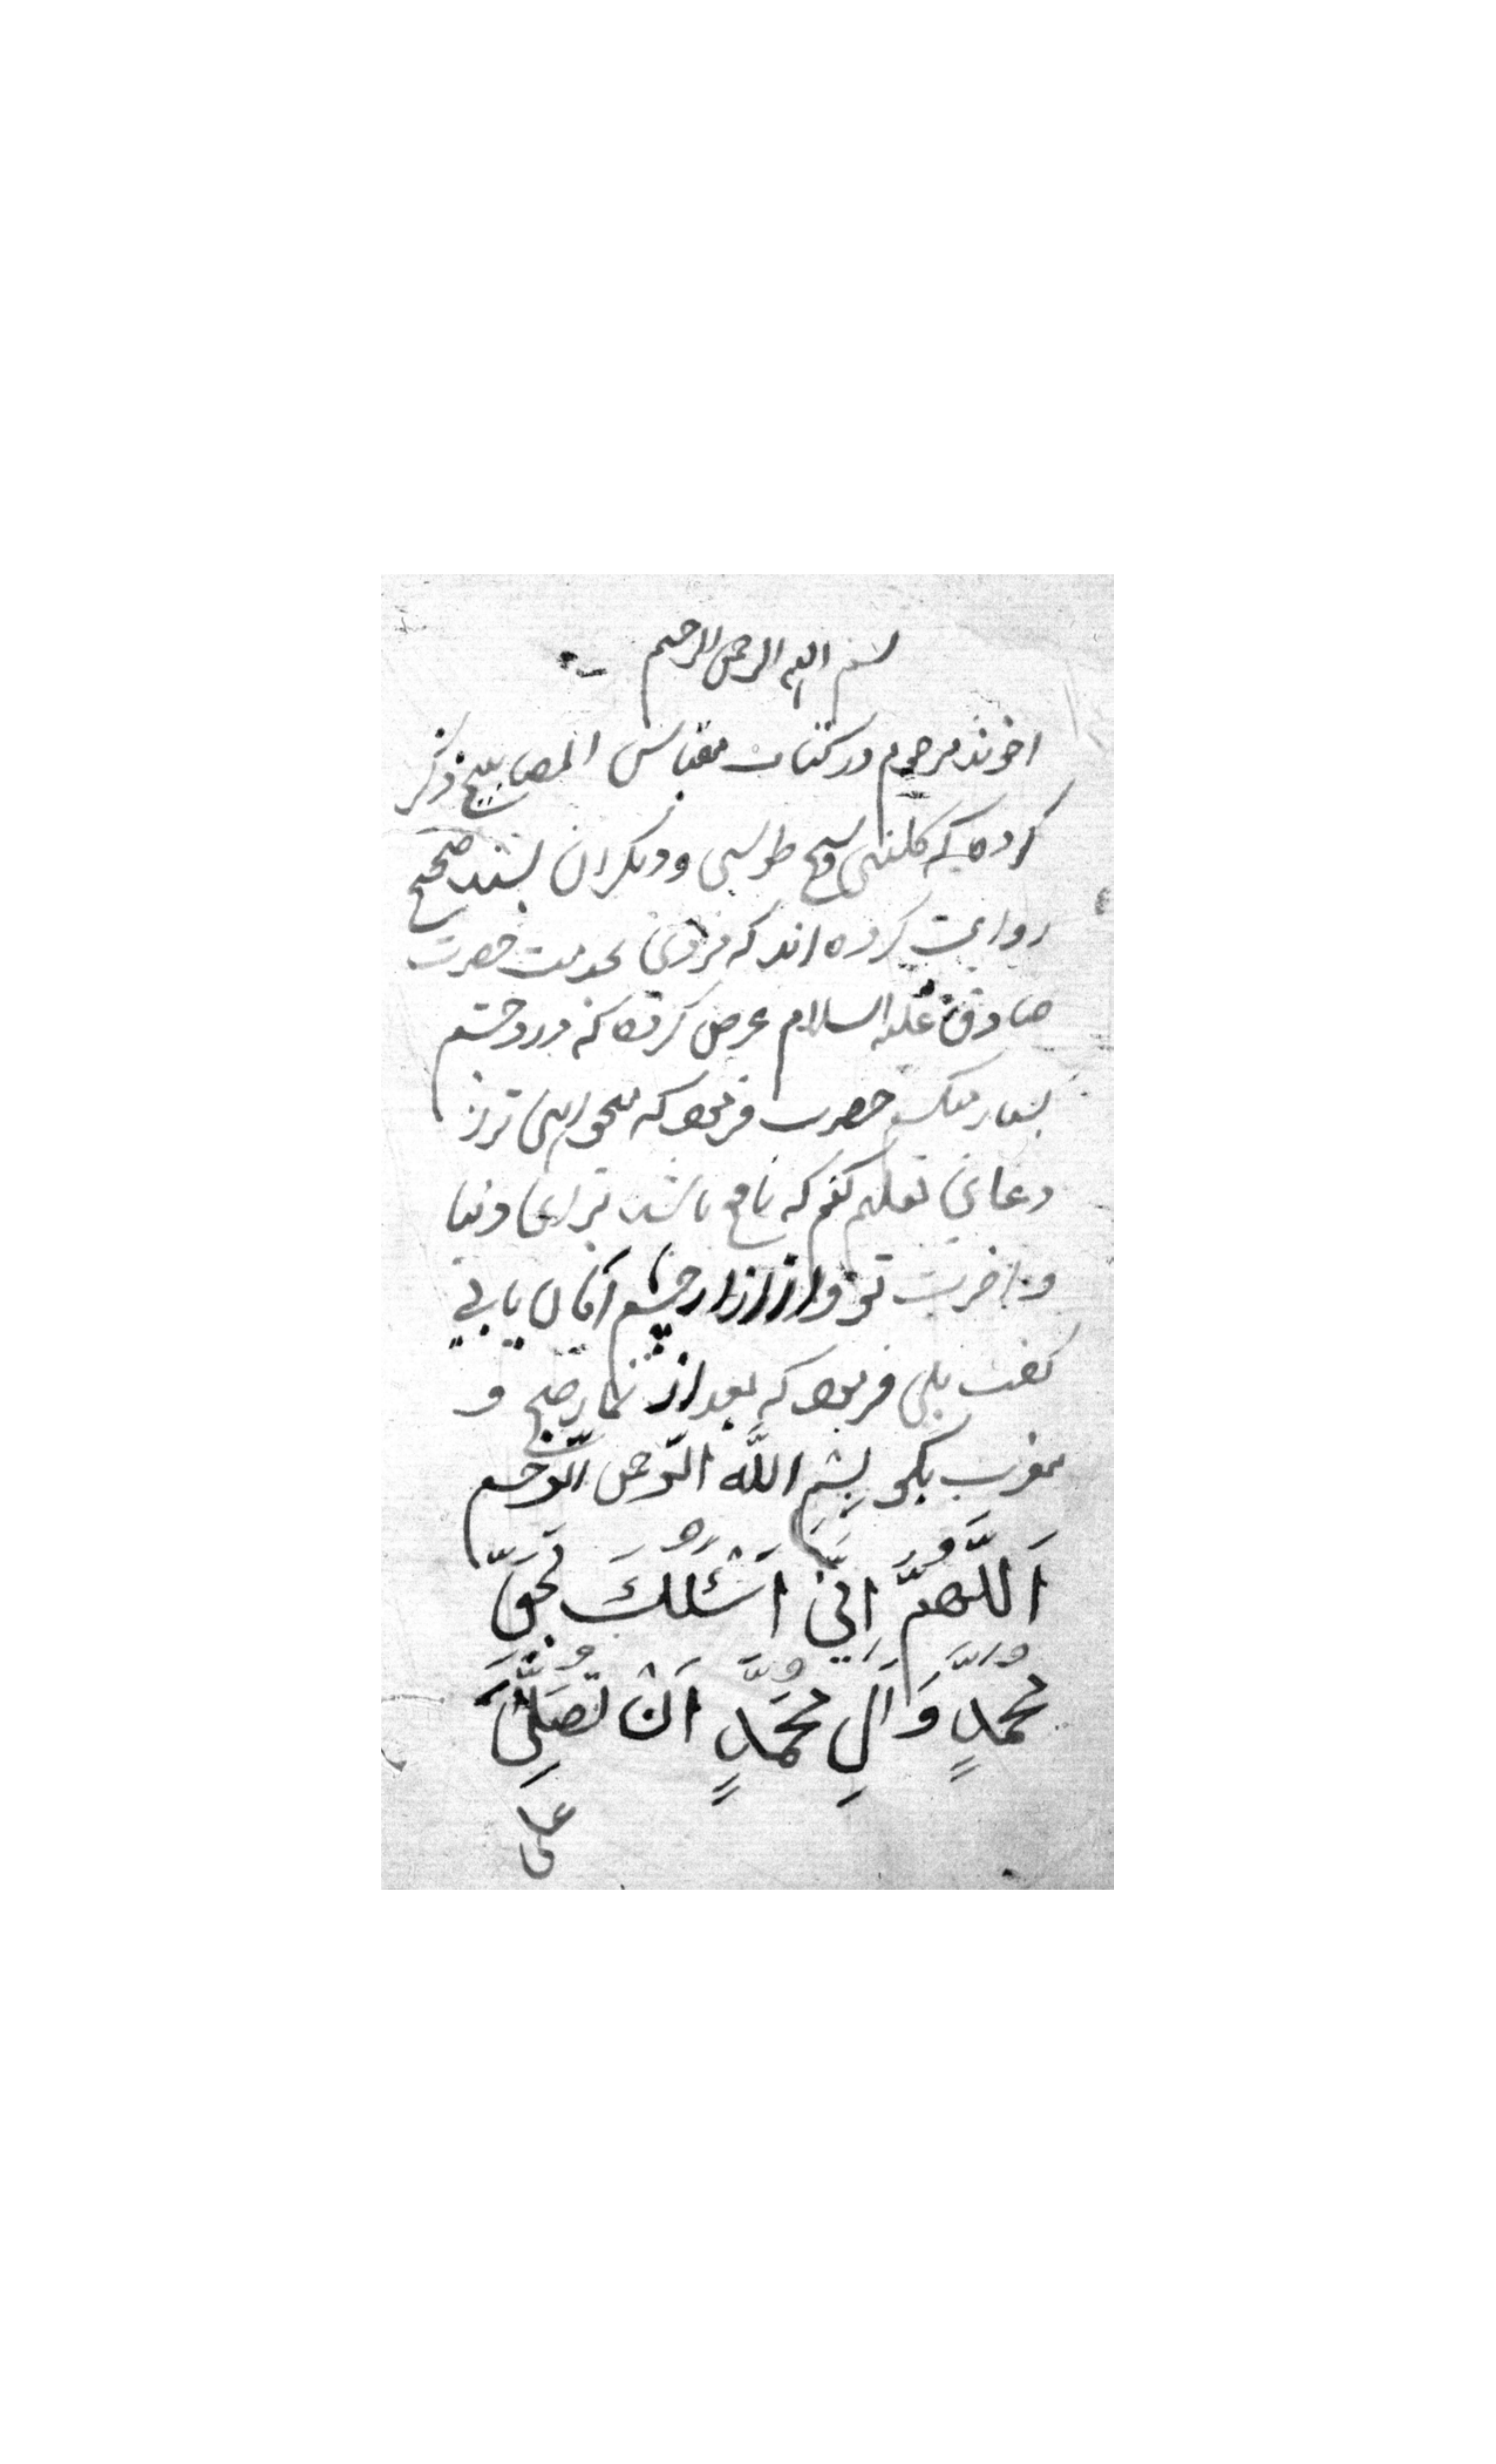 بسم الله الرحمن الرحیم
اخوند مرحوم در کتاب مقباس المصابیح ذکر
کرده که کلینی و شیخ طوسی و دیکران بسند صحیح
روایت کرده اند که مردی بخدمت حضرت
صادق علیه السلام عرض کرد که درد چشم
بسیار میکشم حضرت فرمود که میخواهی ترا
دعائی تعلیم کنم که نافع باشد برای دنیا
و اخرت تو و از ازار چشم امان یابی
کفت بلی فرمود که بعد از نماز صبح و
مغرب بکو بِسْمِ اللَّه الرَّحمن الرَّحیم
اَللّهُمَّ اِنّی اَسْئَلُكَ بِحَقِّ
مُحَمَّدٍ وَآلِ مُحَمَّدٍ اَنْ تُصَلِّیَ
علی